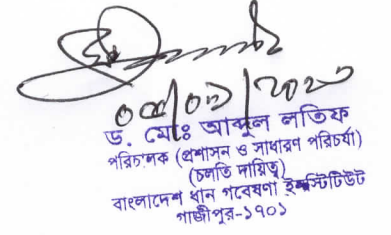 ড. মোঃ আব্দুল লতিফ
পরিচালক (প্রশাসন ও সাধারণ পরিচর্যা)
(চলতি দায়িত্ব)
বাংলাদেশ ধান গবেষণা ইন্সটিটিউট
গাজীপুর-১৭০১